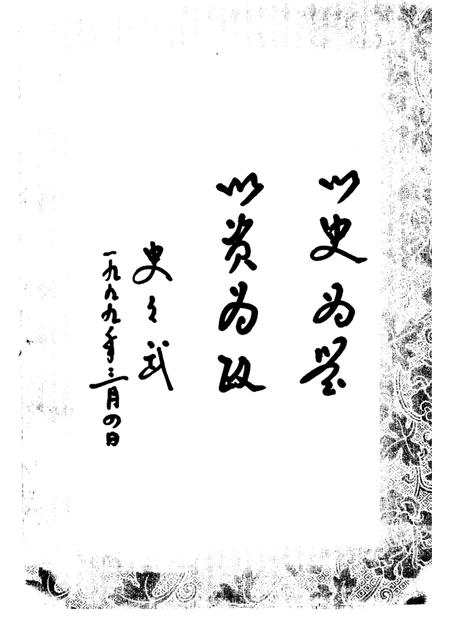 以史为鉴
以资为政
史武
一九九九年三月四日